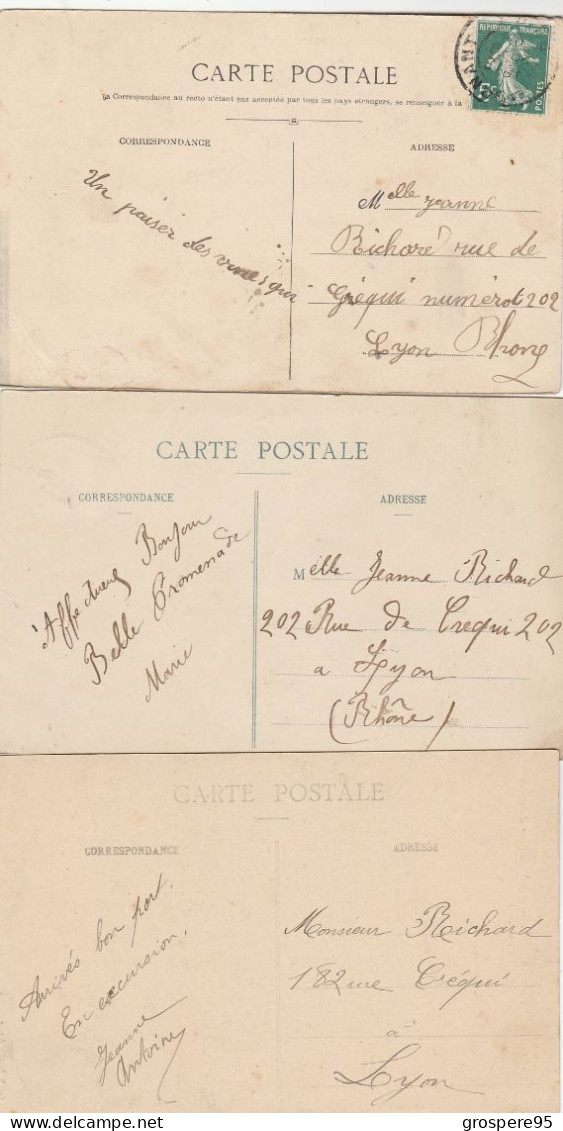 CARTE POSTALE
REPUBLIQUE FRANÇAISE
POSTES
La Correspondance au recto n'étant pas acceptée par tous les pays étrangers, se renseigner à la
CORRESPONDANCE
ADRESSE
Un paiser des
Melle Jeanne
Richard rue de
Créqui numérot 202
Lyon Rhone
CARTE POSTALE
CORRESPONDANCE
ADRESSE
Affectueux Bonjour
Belle Promenade
Marie
Melle Jeanne Richard
202 Rue de Crequi 202
a Lyon
(Rhône)
CARTE POSTALE
CORRESPONDANCE
ADRESSE
Arrivés bon port.
En excursion,
Jeanne
Antoine
Monsieur Richard
182 rue Créqui
à
Lyon
grospere95